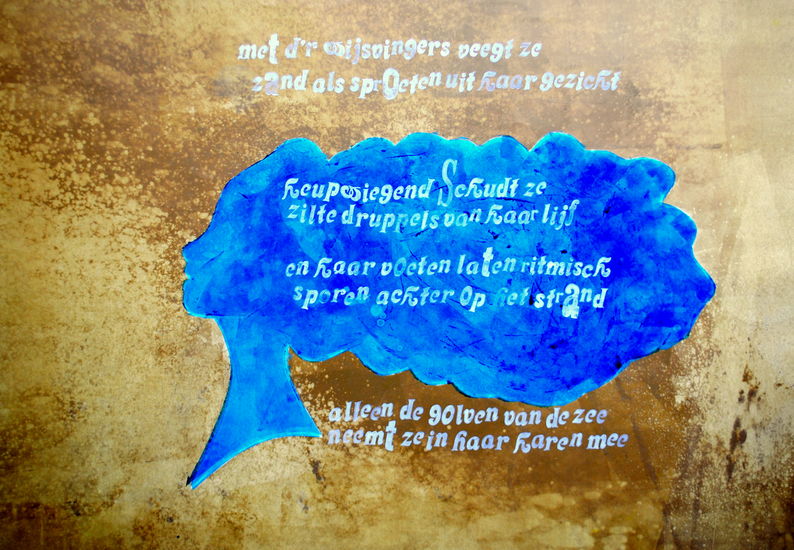 met d'r wijsvingers veegt ze
zand als sproeten uit haar gezicht
heupwiegend Schudt ze
zilte druppels van haar lijf
en haar voeten laten ritmisch
sporen achter op het strand
alleen de golven van de zee
neemt ze in haar haren mee